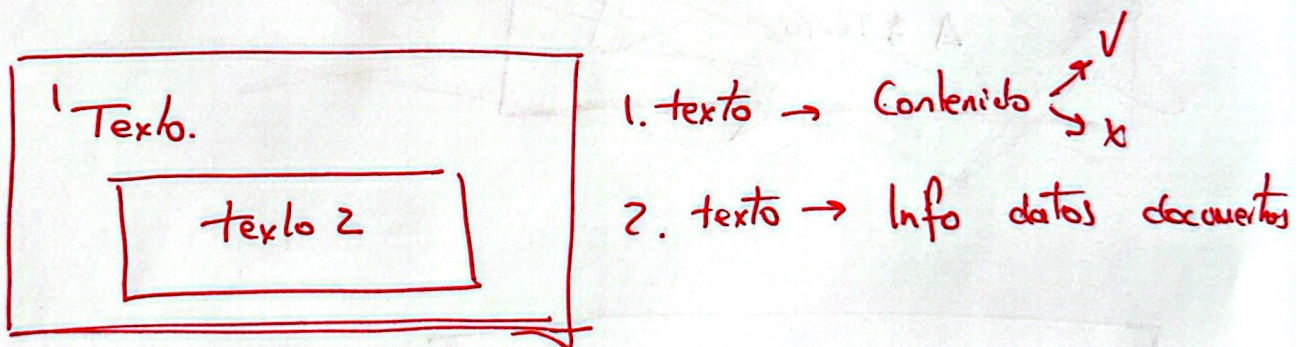 1 Texto.
texto 2
1. texto → Contenido
✓
x
2. texto → Info datos documentos